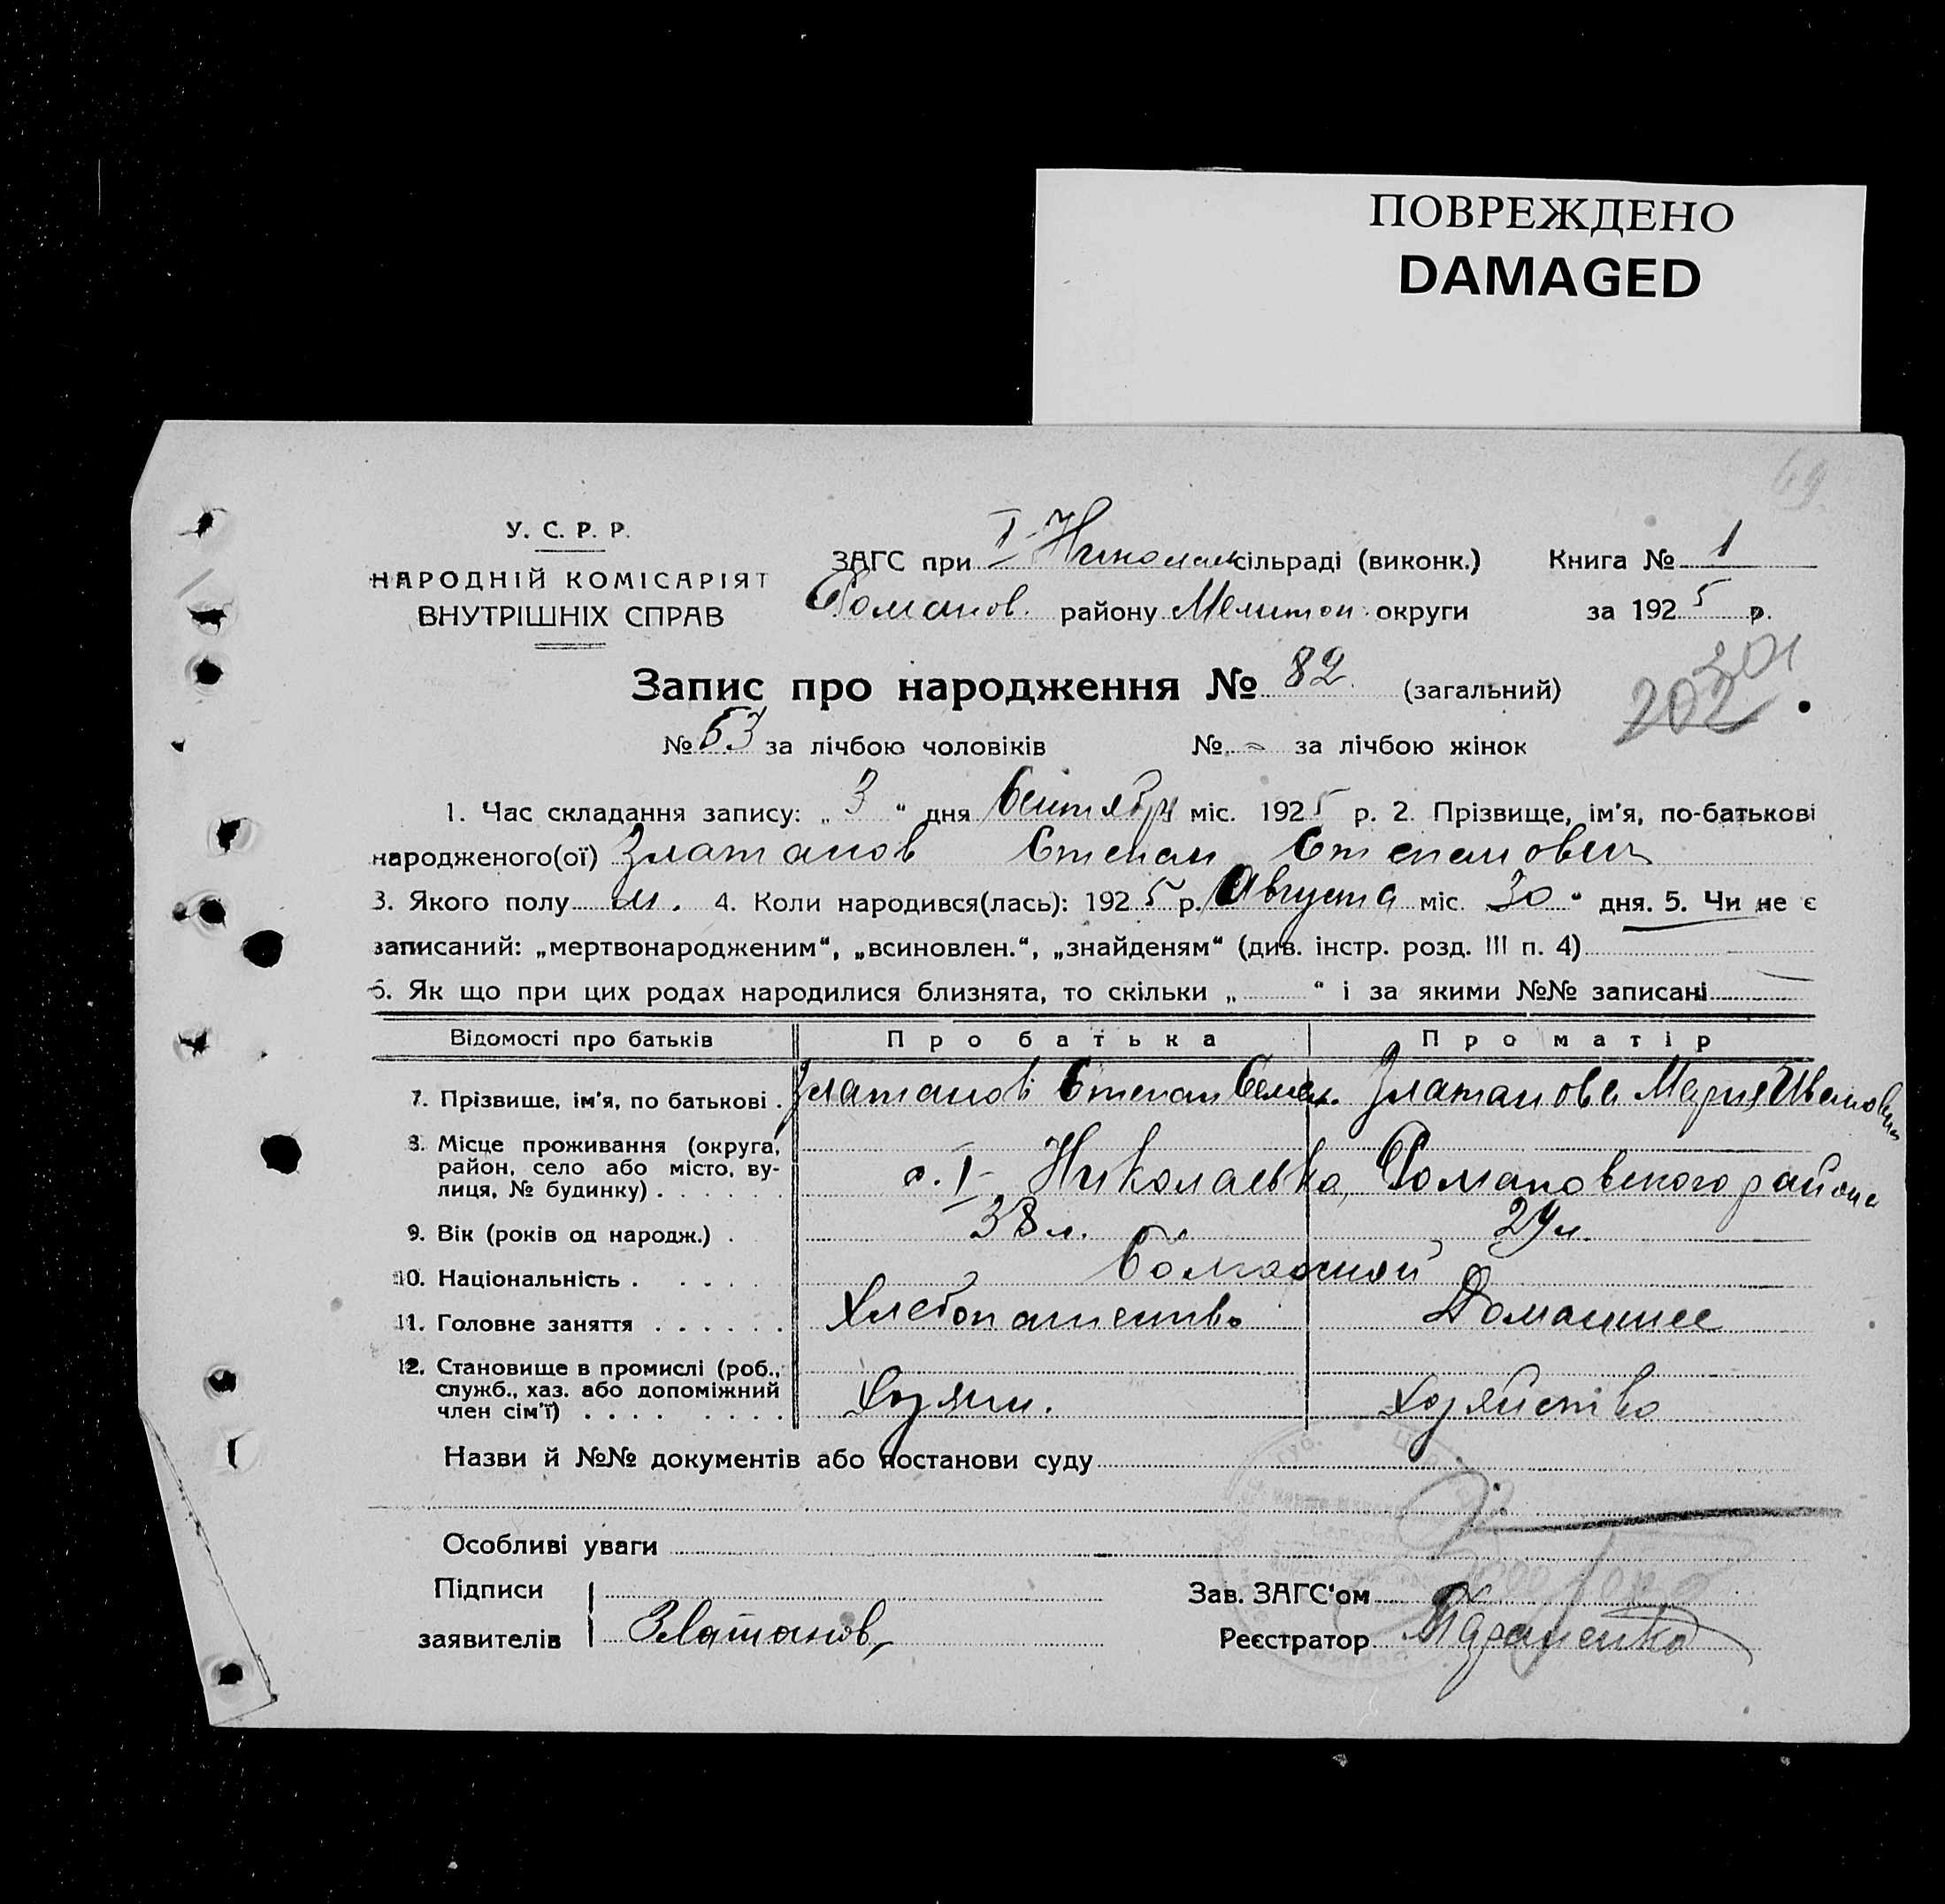 ПОВРЕЖДЕНО
DAMAGED
69
У. С. Р. Р.
НАРОДНІЙ КОМІСАРІЯТ
ВНУТРІШНІХ СПРАВ
ЗАГС при I Николаев сільраді (виконк.) Книга № 1
Романов. району Мелитоп. округи за 1925 р.
Запис про народження № 82. (загальний)
301
202
№ 53 за лічбою чоловіків № – за лічбою жінок
1. Час складання запису: „ 3 “ дня Сентября міс. 1925 р. 2. Прізвище, ім'я, по-батькові
народженого(ої) Златанов Степан Степанович
3. Якого полу м. 4. Коли народився(лась): 1925 р. Августа міс. 30 “ дня. 5. Чи не є
записаний: „мертвонародженим“, „всиновлен.“, „знайденям“ (див. інстр. розд. III п. 4)
6. Як що при цих родах народилися близнята, то скільки „ “ і за якими №№ записані
Відомості про батьків Про батька Про матір
7. Прізвище, ім'я, по батькові . Златанов Степан Семен. Златанова Мария Ивановна
8. Місце проживання (округа, район, село або місто, вулиця, № будинку) . с. I Николаевка, Романовского района
9. Вік (років од народж.) . 38 л. 24 л.
10. Національність . Болгарской
11. Головне заняття . Хлебопашество Домашнее
12. Становище в промислі (роб., служб., хаз. або допоміжний член сім'ї) . Хозяин. Хозяйство
Назви й №№ документів або постанови суду
Особливі уваги
Підписи
заявителів Златанов
Зав. ЗАГС'ом
Реєстратор